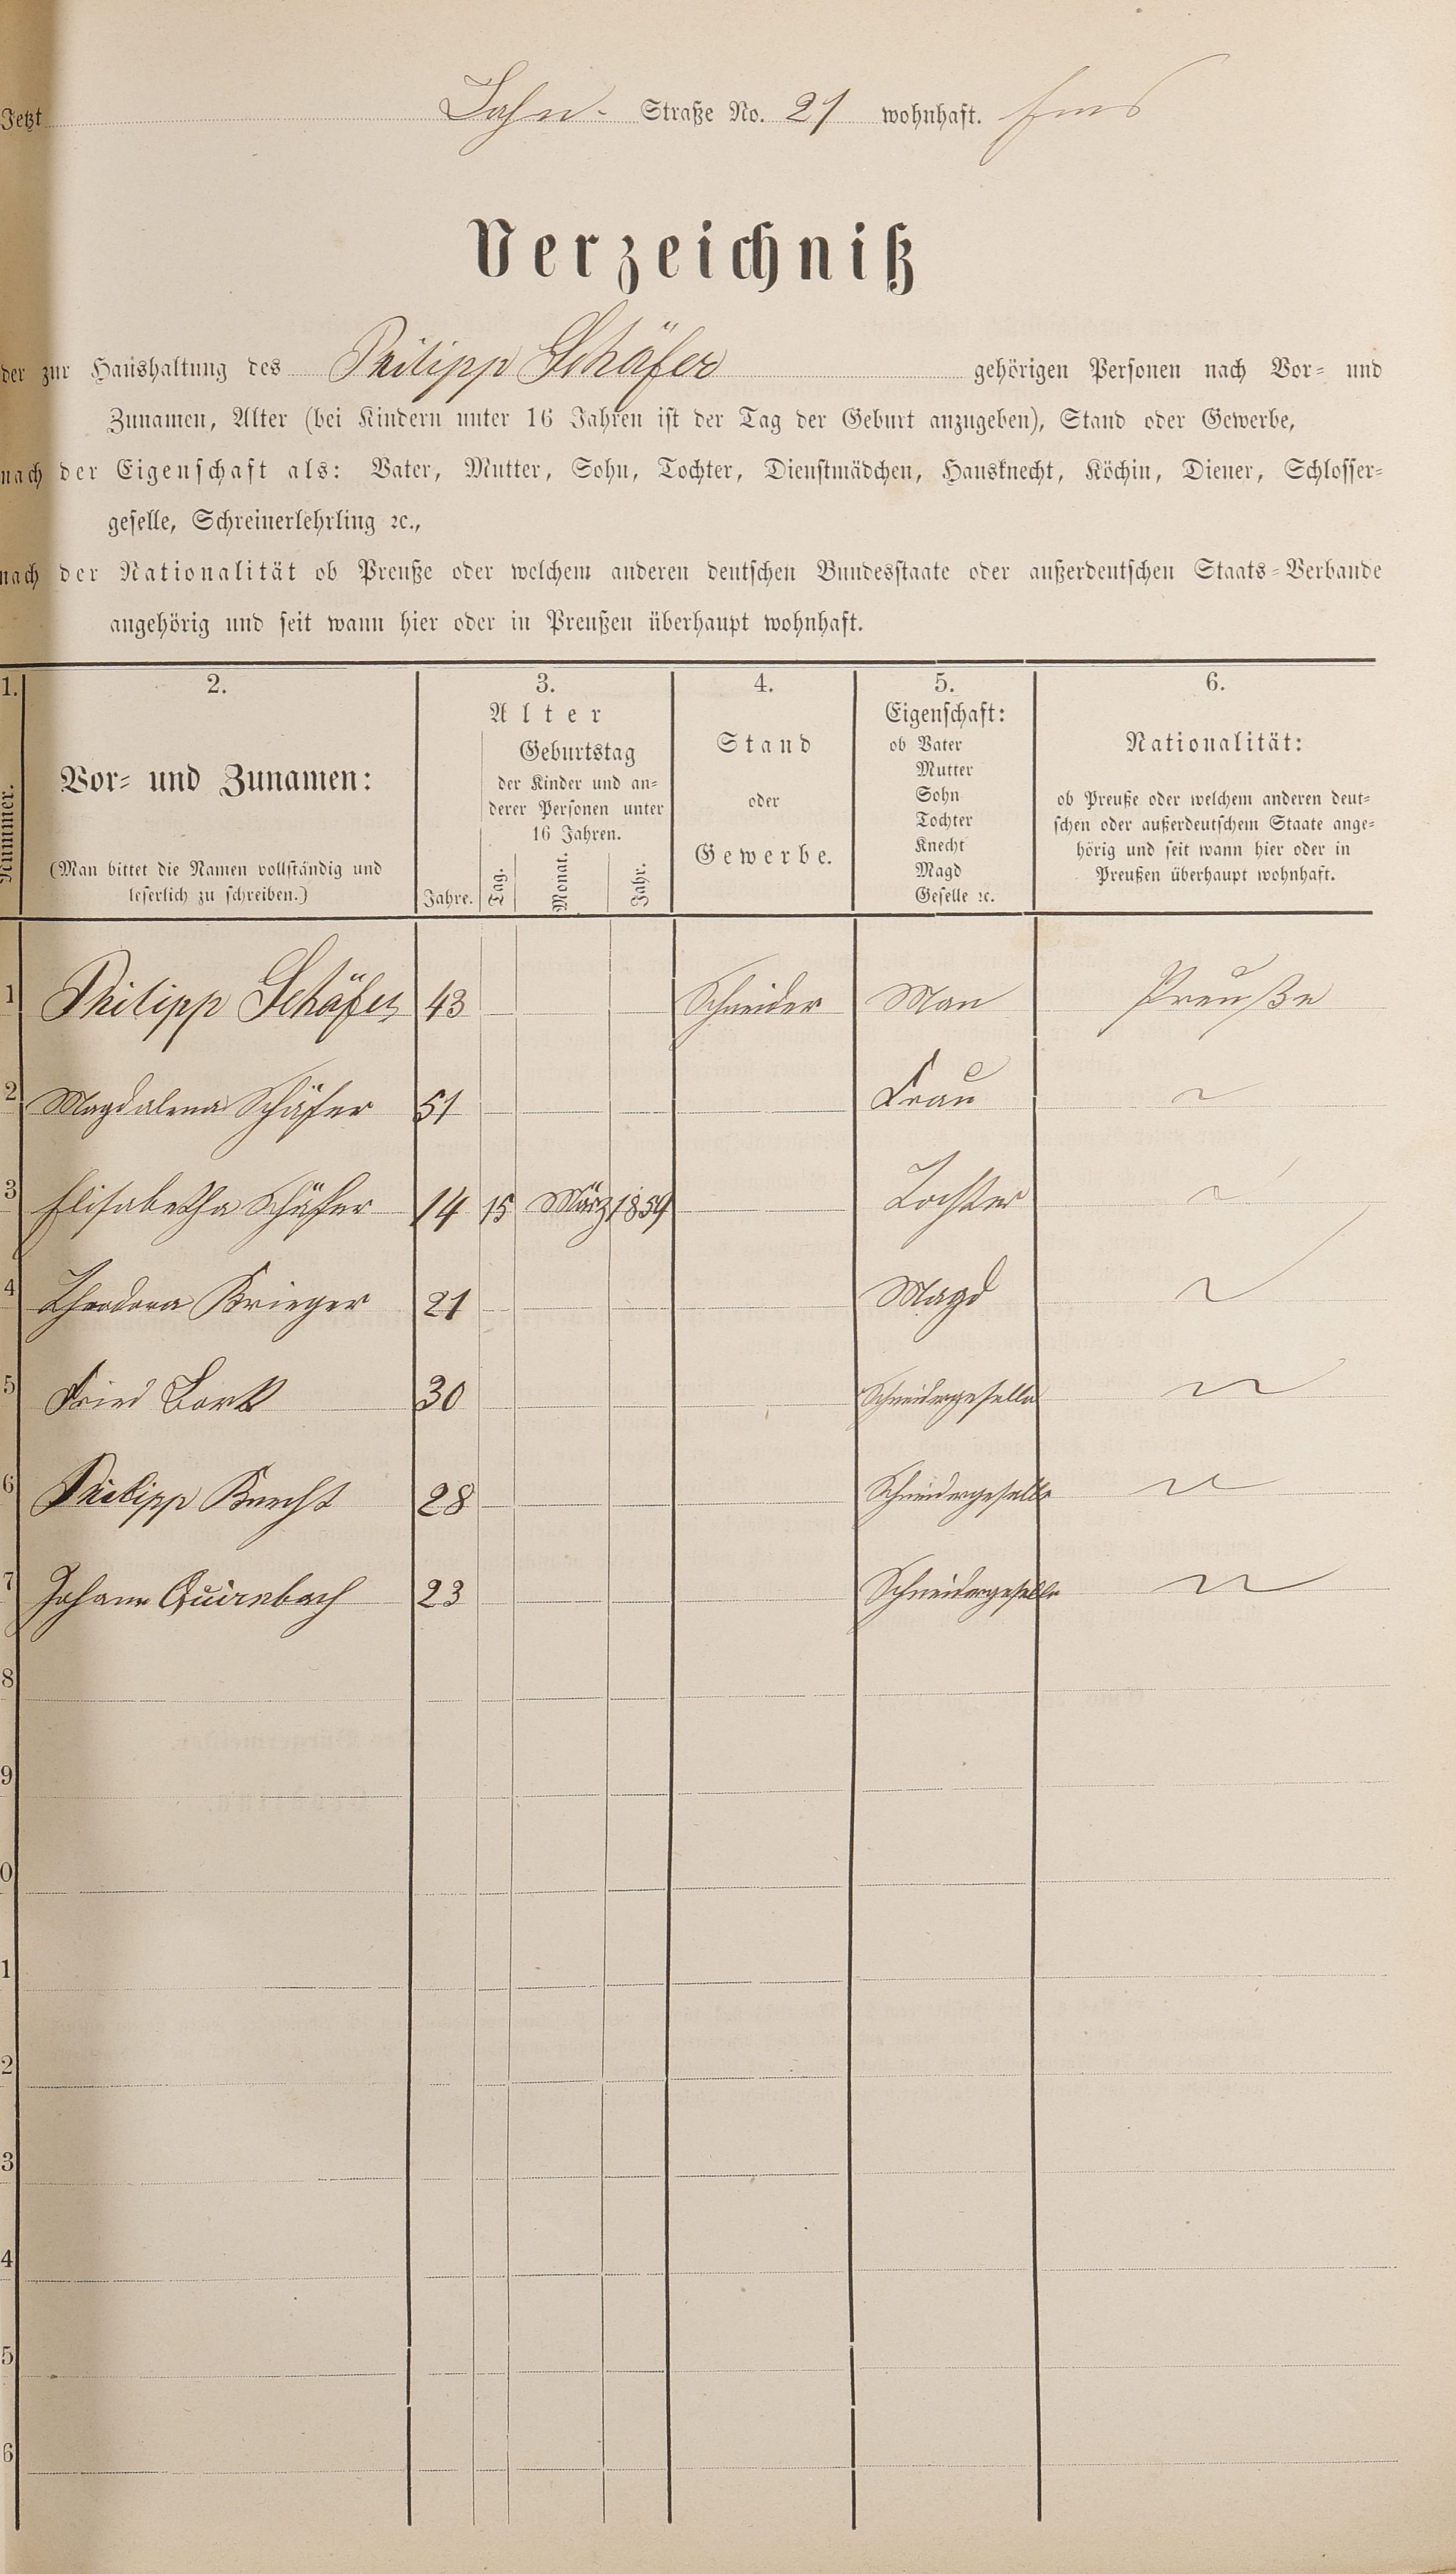 Jetzt Lahn- Straße No. 21 wohnhaft. Ems
Verzeichniß
der zur Haushaltung des Philipp Schäfer gehörigen Personen nach Vor- und
Zunamen, Alter (bei Kindern unter 16 Jahren ist der Tag der Geburt anzugeben), Stand oder Gewerbe,
nach der Eigenschaft als: Vater, Mutter, Sohn, Tochter, Dienstmädchen, Hausknecht, Köchin, Diener, Schlosser-
geselle, Schreinerlehrling ꝛc.,
nach der Nationalität ob Preuße oder welchem anderen deutschen Bundesstaate oder außerdeutschen Staats-Verbande
angehörig und seit wann hier oder in Preußen überhaupt wohnhaft.
1.
Nummer.
2.
Vor- und Zunamen:
(Man bittet die Namen vollständig und
leserlich zu schreiben.)
3.
Alter
Jahre.
Geburtstag
der Kinder und an-
derer Personen unter
16 Jahren.
Tag. Monat. Jahr.
4.
Stand
oder
Gewerbe.
5.
Eigenschaft:
ob Vater
Mutter
Sohn
Tochter
Knecht
Magd
Geselle ꝛc.
6.
Nationalität:
ob Preuße oder welchem anderen deut-
schen oder außerdeutschem Staate ange-
hörig und seit wann hier oder in
Preußen überhaupt wohnhaft.
1 Philipp Schäfer 43 Schneider Man Preuße
2 Magdalena Schäfer 51 Frau ~
3 Elisabetha Schäfer 14 15 März 1859 Tochter ~
4 Theodora Krieger 21 Magd ~
5 Fried 30 Schneidergeselle ~
6 Philipp Knecht 28 Schneidergeselle ~
7 Johann Quirnbach 23 Schneidergeselle ~
8
9
0
1
2
3
4
5
6